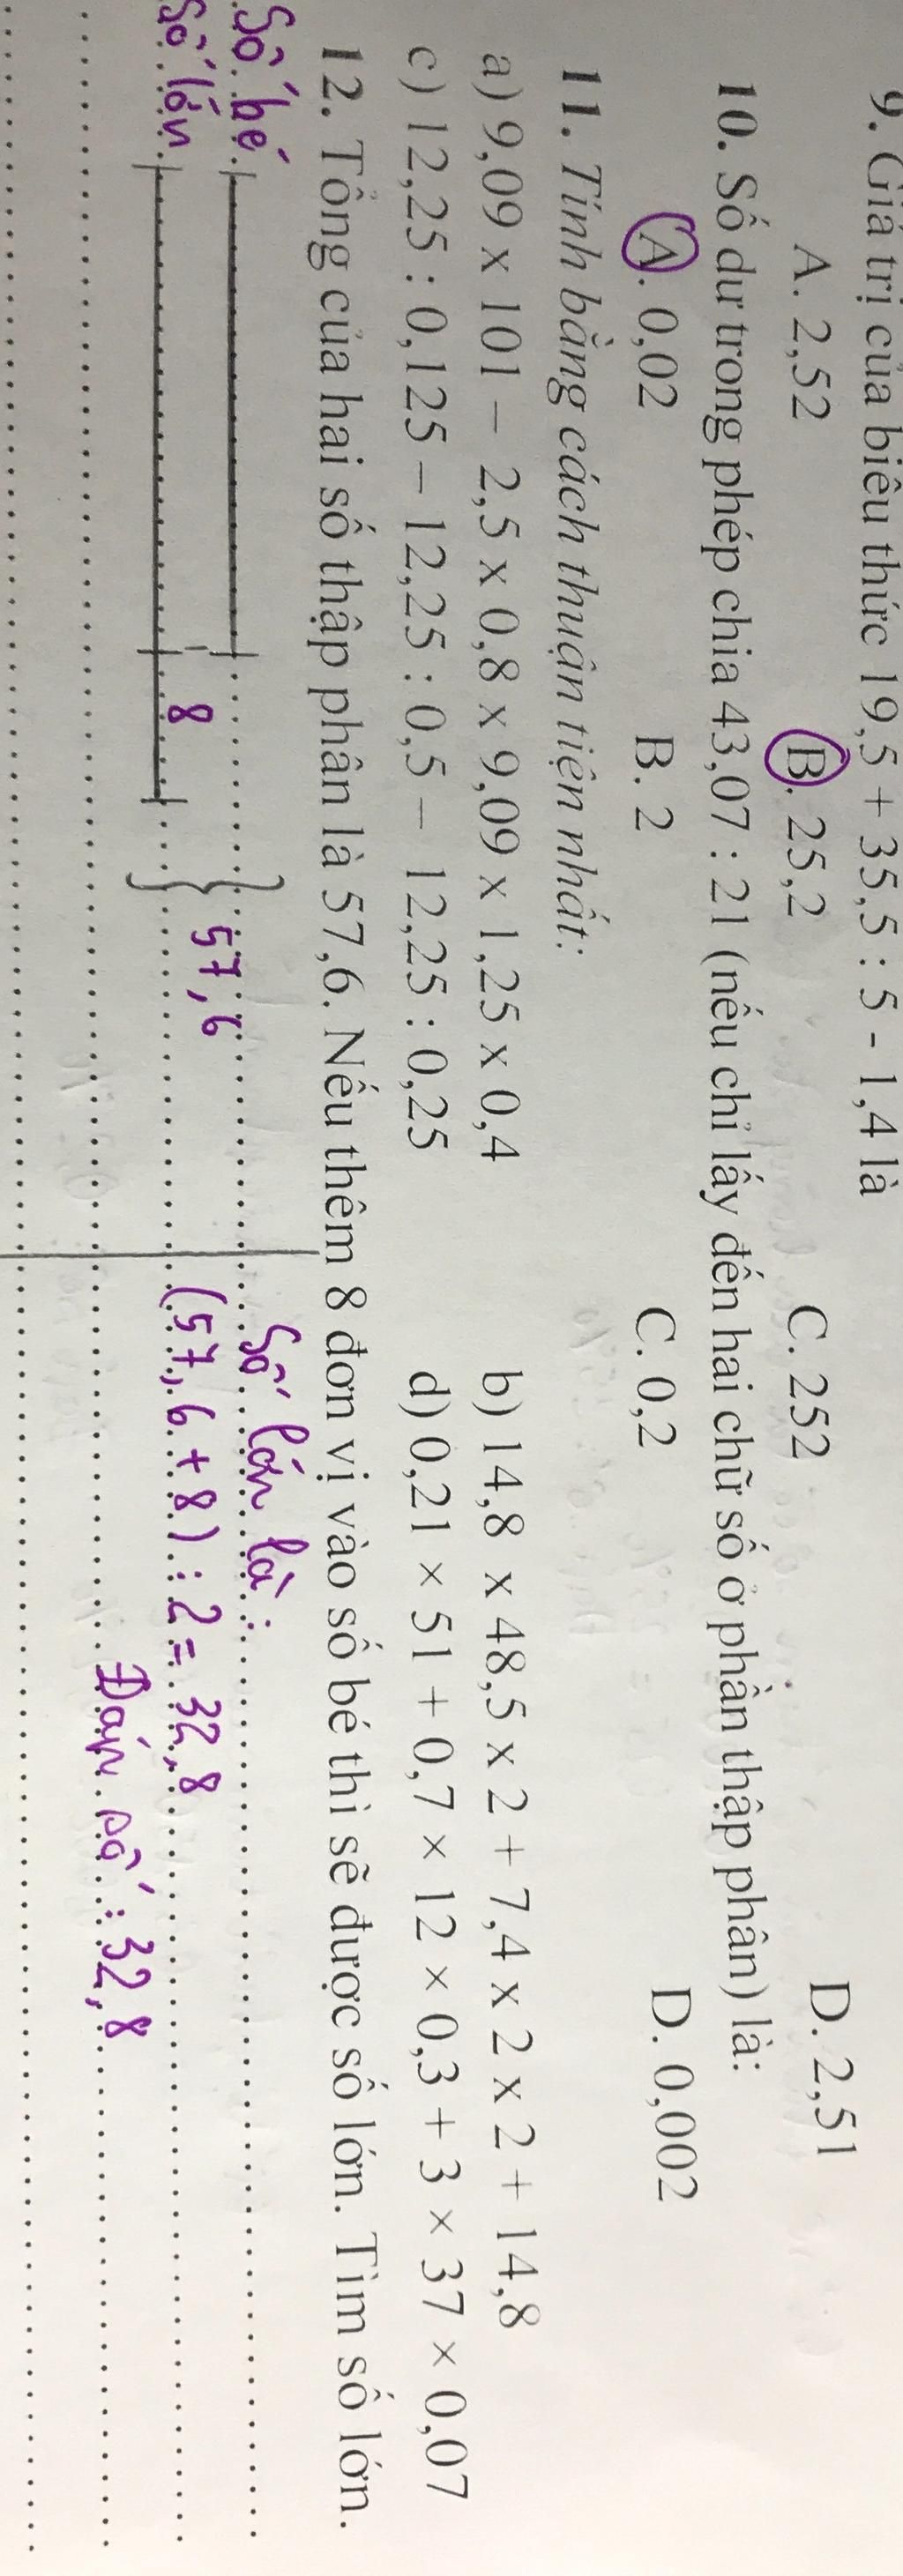 9. Giá trị của biểu thức 19,5 + 35,5 : 5 - 1,4 là
A. 2,52 B. 25,2 C. 252 D. 2,51
10. Số dư trong phép chia 43,07 : 21 (nếu chỉ lấy đến hai chữ số ở phần thập phân) là:
A. 0,02 B. 2 C. 0,2 D. 0,002
11. Tính bằng cách thuận tiện nhất:
a) 9,09 x 101 – 2,5 x 0,8 x 9,09 x 1,25 x 0,4 b) 14,8 x 48,5 x 2 + 7,4 x 2 x 2 + 14,8
c) 12,25 : 0,125 – 12,25 : 0,5 – 12,25 : 0,25 d) 0,21 × 51 + 0,7 × 12 × 0,3 + 3 × 37 × 0,07
12. Tổng của hai số thập phân là 57,6. Nếu thêm 8 đơn vị vào số bé thì sẽ được số lớn. Tìm số lớn.
Số bé Số lớn là:
8 57,6
Số lớn (57,6 + 8) : 2 = 32,8
Đáp số: 32,8